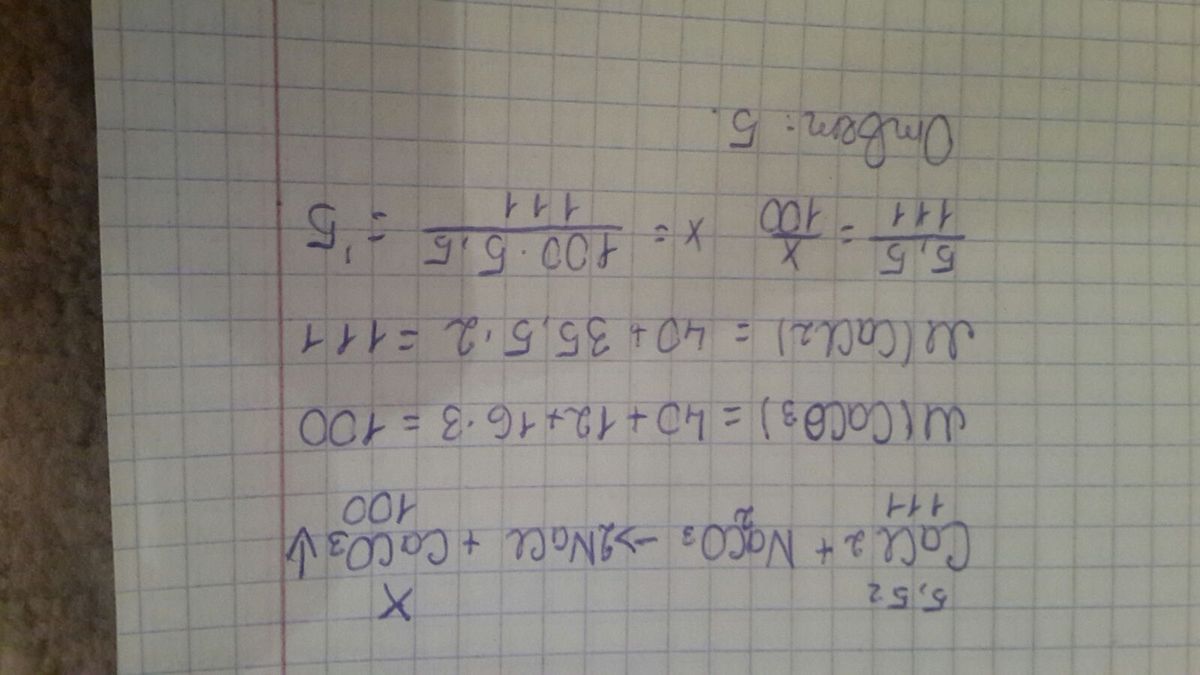 5,5г X
CaCl2 + Na2CO3 → 2NaCl + CaCO3↓
111 100
M(CaCO3) = 40 + 12 + 16·3 = 100
M(CaCl2) = 40 + 35,5·2 = 111
5,5/111 = x/100 x = 100·5,5/111 = 5
Ответ: 5.